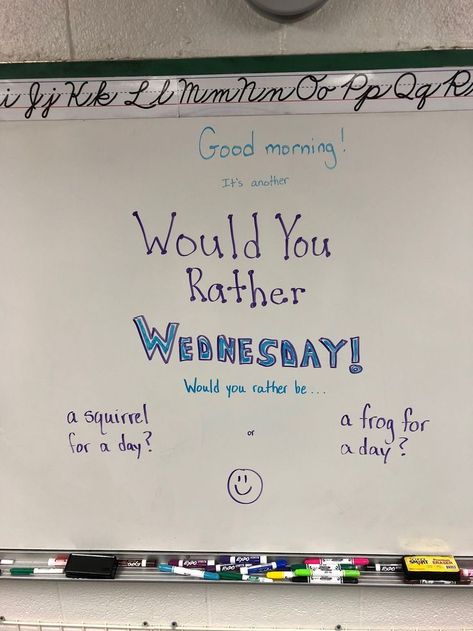 i Jj Kk Ll Mm Nn Oo Pp Qq R
Good morning!
It's another
Would You
Rather
WEDNESDAY!
Would you rather be...
a squirrel
for a day?
or
a frog for
a day?
EXPO
EXPO
EXPO
EXPO